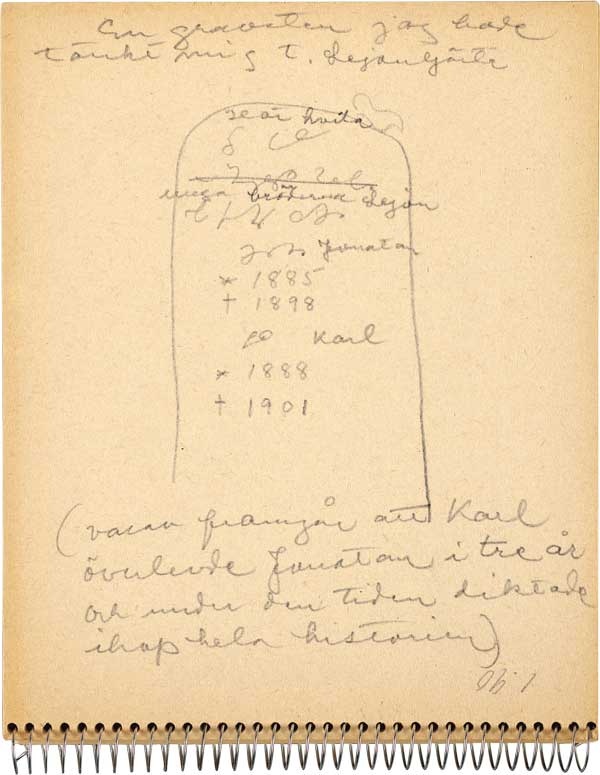 En gravsten jag hade
tänkt mig t. Lejonhjärta
hvita
unga bröderna Lejon
Jonatan
* 1885
† 1898
Karl
* 1888
† 1901
(varav framgår att Karl
överlevde Jonatan i tre år
och under den tiden diktade
ihop hela historien)